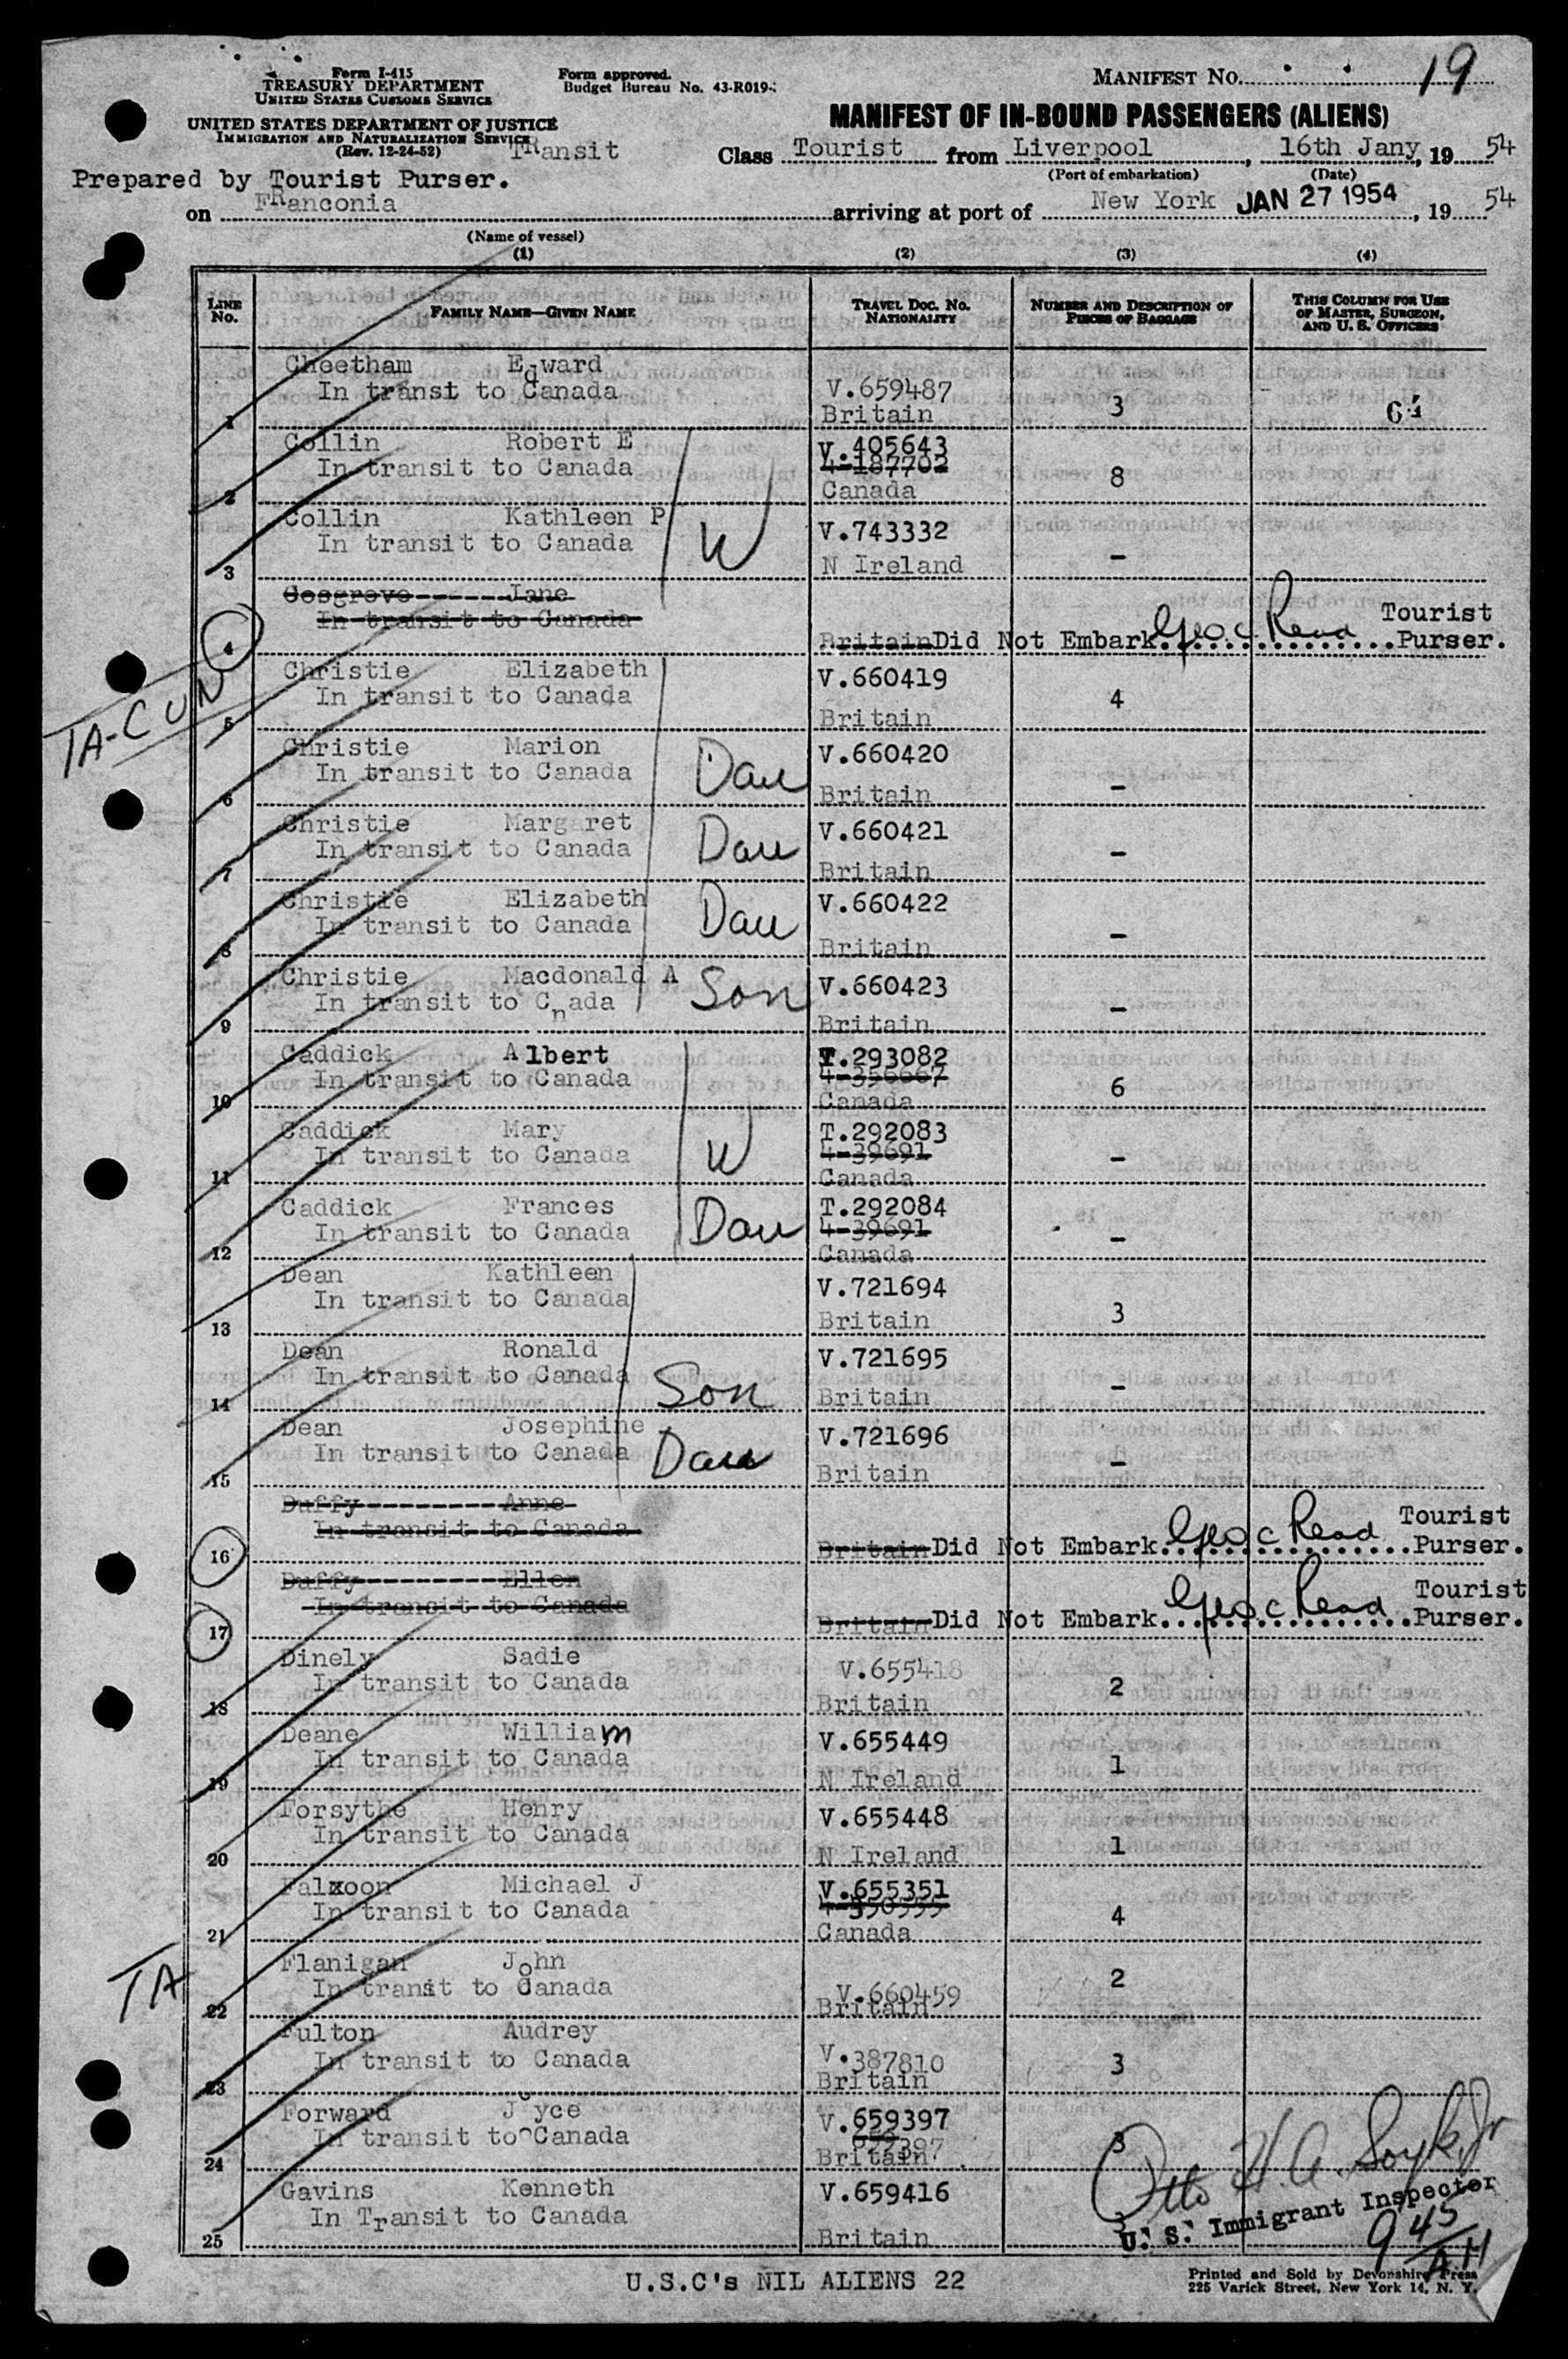 Form I-415
TREASURY DEPARTMENT
UNITED STATES CUSTOMS SERVICE
UNITED STATES DEPARTMENT OF JUSTICE
IMMIGRATION AND NATURALIZATION SERVICE
(Rev. 12-24-52)
Form approved.
Budget Bureau No. 43-R019-
MANIFEST NO. 19
MANIFEST OF IN-BOUND PASSENGERS (ALIENS)
TRansit
Class Tourist from Liverpool, 16th Jany, 19 54
(Port of embarkation) (Date)
Prepared by Tourist Purser.
on FRanconia arriving at port of New York JAN 27 1954, 19 54
(Name of vessel)
(1) (2) (3) (4)
LINE NO. FAMILY NAME—GIVEN NAME TRAVEL DOC. NO. NATIONALITY NUMBER AND DESCRIPTION OF PIECES OF BAGGAGE THIS COLUMN FOR USE OF MASTER, SURGEON, AND U. S. OFFICERS
Cheetham Edward
In transt to Canada V.659487
1 Britain 3
Collin Robert E V.405643
In transit to Canada 4-187702
2 Canada 8
Collin Kathleen P V.743332
In transit to Canada W
3 N Ireland -
Cosgrove Jane
In transit to Canada Tourist
4 Britain Did Not Embark. Geo C Read Purser.
TA-CUN
Christie Elizabeth V.660419
In transit to Canada 4
5 Britain
Christie Marion V.660420
In transit to Canada Dau
6 Britain -
Christie Margaret V.660421
In transit to Canada Dau
7 Britain -
Christie Elizabeth V.660422
In transit to Canada Dau
8 Britain -
Christie Macdonald A V.660423
In transit to Cnada Son
9 Britain -
Caddick Albert T.293082
In transit to Canada 4-396667
10 Canada 6
Caddick Mary T.292083
In transit to Canada W 4-39691
11 Canada -
Caddick Frances T.292084
In transit to Canada Dau 4-39691
12 Canada -
Dean Kathleen V.721694
In transit to Canada
13 Britain 3
Dean Ronald V.721695
In transit to Canada Son
14 Britain -
Dean Josephine V.721696
In transit to Canada Dau
15 Britain -
Duffy Anne
In transit to Canada Tourist
16 Britain Did Not Embark. Geo C Read Purser.
Duffy Ellen
In transit to Canada Tourist
17 Britain Did Not Embark. Geo C Read Purser.
Dinely Sadie V.655418
In transit to Canada 2
18 Britain
Deane William V.655449
In transit to Canada 1
19 N Ireland
Forsythe Henry V.655448
In transit to Canada 1
20 N Ireland
Falxoon Michael J V.655351
In transit to Canada 4
21 Canada
Flanigan John
In transit to Canada V.660459 2
22 Britain
TA
Fulton Audrey V.387810
In transit to Canada 3
23 Britain
Forward Joyce V.659397
In transit to Canada 3
24 Britain
Gavins Kenneth V.659416
In Transit to Canada 3
25 Britain
Otto H.A. Jr
U. S. Immigrant Inspector
9 45 AM
U.S.C's NIL ALIENS 22
Printed and Sold by Devonshire Press
225 Varick Street, New York 14, N. Y.